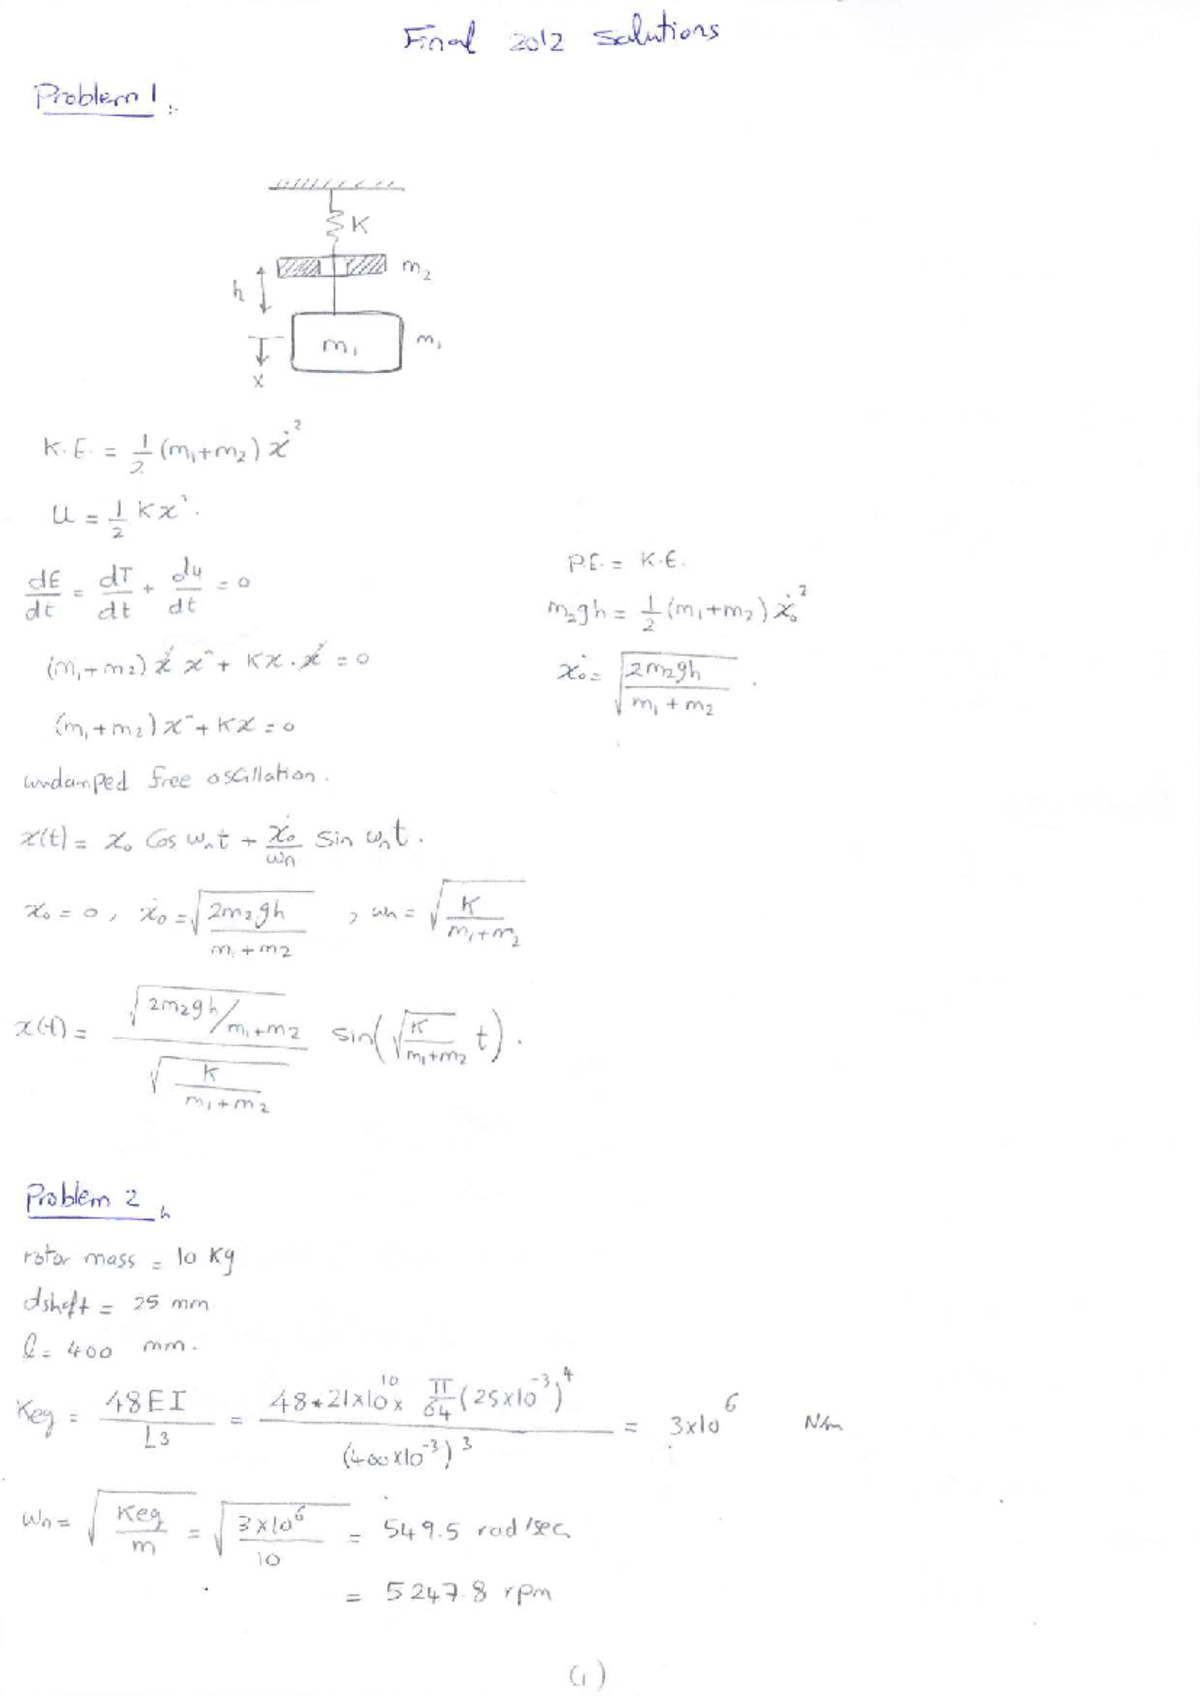 Final 2012 Solutions
Problem 1 :
K
m2
h
m1
m1
x
K.E. = 1/2 (m1+m2) ẋ²
U = 1/2 Kx².
dE/dt = dT/dt + du/dt = 0
(m1+m2) ẋ ẍ + Kx . ẋ = 0
(m1+m2) ẍ + Kx = 0
undamped free oscillation.
x(t) = x₀ Cos ωnt + ẋ₀/ωn Sin ωnt .
x₀ = 0 , ẋ₀ = √(2m2gh/(m1+m2)) , ωn = √(K/(m1+m2))
x(t) = √(2m2gh/m1+m2) / √(K/(m1+m2)) sin(√(K/(m1+m2)) t) .
P.E. = K.E.
m2gh = 1/2 (m1+m2) ẋ₀²
ẋ₀ = √(2m2gh/(m1+m2)) .
Problem 2
rotor mass = 10 Kg
dshaft = 25 mm
l = 400 mm.
Keq = 48EI/L3 = 48*21x10^10 x π/64 (25x10^-3)^4 / (400x10^-3)^3 = 3x10^6 N/m
ωn = √(Keq/m) = √(3x10^6/10) = 549.5 rad/sec
= 5247.8 rpm
(1)